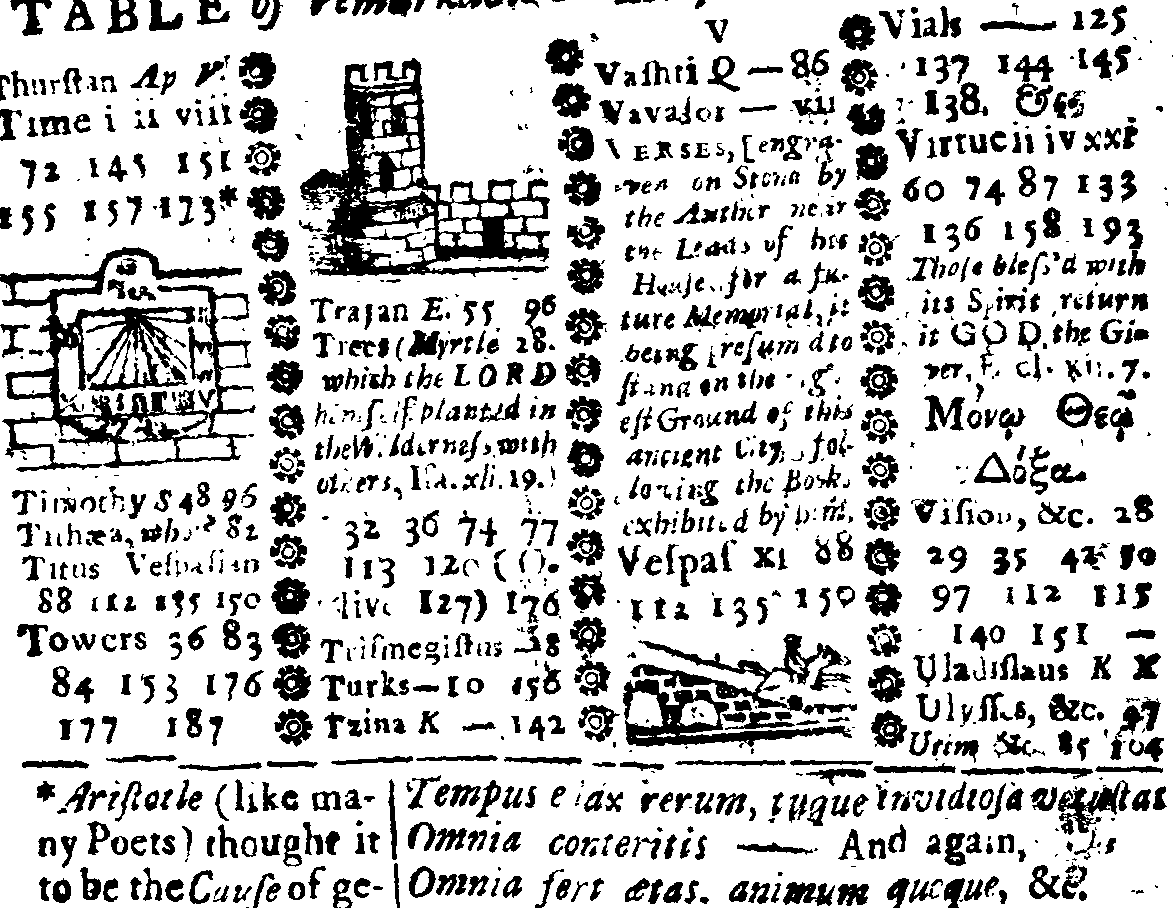 TABLE of remarkable
Thurſtan Ap V.
Time i ii viii
72 145 151
155 157 173*
Timothy S 48 96
82
Titus Veſpaſian
88 112 135 150
Towers 36 83
84 153 176
177 187
Trajan E. 55 96
Trees (Myrtle 28.
which the LORD
himſelf planted in
the Wilderneſs with
others, Iſa. xli. 19.)
32 36 74 77
113 120 (O.
live 127) 176
Triſmegiſtus
Turks — 10 156
Tzina K — 142
V
Vaſhti Q — 86
Vavaſor — vii
VERSES, [engra-
ven on Stone by
the Author near
the Leads of his
Houſe, for a fu-
ture Memorial, it
being preſum'd to
ſtand on the
eſt Ground of this
ancient City, fol-
lowing the Book,
exhibited by him.
Veſpaſ xi 88
112 135 150
Vials — 125
137 144 145
138. &c
Virtue ii iv xxi
60 74 87 133
136 158 193
Thoſe bleſs'd with
its Spirit return
it GOD, the Gi-
ver, E cl. xii. 7.
Μόνῳ Θεῷ
Δόξα.
Viſion, &c. 28
29 35 42 50
97 112 115
140 151 —
Uladiſlaus K X
Ulyſſes, &c. 47
Urim &c. 85 104
*Ariſtotle (like ma-
ny Poets) thought it
to be the Cauſe of ge-
Tempus edax rerum, tuque invidioſa vetuſtas
Omnia conteritis — And again,
Omnia fert ætas, animum quoque, &c.